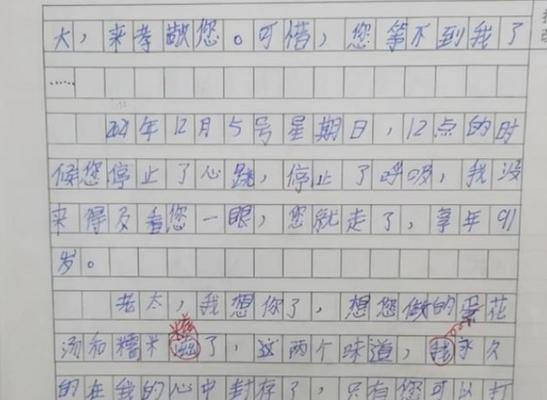 大，来孝敬您。可惜，您等不到我了
……
2021年12月5号星期日，12点的时
候您停止了心跳，停止了呼吸，我没
来得及看您一眼，您就走了，享年91
岁。
老太，我想你了，想您做的蛋花
汤和糯米了，这两个味道，我永久
的在我的心中封存了，只有您可以打